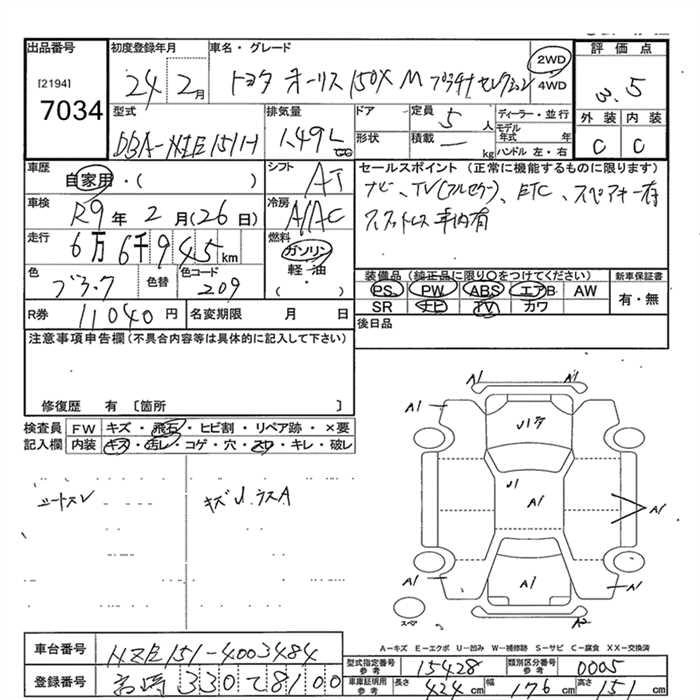 出品番号 初度登録年月 車名・グレード 評価点
[2194] 7034 24 2月 トヨタ オーリス 150X M プラチナセレクション 2WD 4WD 3.5
型式 排気量 ドア 定員 5人 ディーラー・並行 外装 内装
DBA-NZE151H 1.49L 形状 積載 — kg モデル年式 年 ハンドル 左・右 C C
車歴 自家用・( ) シフト AT セールスポイント (正常に機能するものに限ります)
車検 R9年 2月(26日) 冷房 A/AC ナビ、TV(フルセグ)、ETC、スペアキー有
走行 6万6千945km 燃料 ガソリン 軽・油 ( ) スタッドレス車内有
色 ブラック 色替 色コード 209 装備品 (純正品に限り○をつけてください) 新車保証書
PS PW ABS エアB AW 有・無
SR ナビ TV カワ
R券 11040円 名変期限 月 日 後日品
注意事項申告欄 (不具合内容等は具体的に記入して下さい)
修復歴 有 〔箇所 〕
検査員記入欄 FW キズ・飛石・ヒビ割・リペア跡・×要
内装 キズ・汚レ・コゲ・穴・スレ・キレ・破レ
シートスレ キズU.ラスA
A1 A1
A1 A1
U1ヶ
U1 A1 A1
A1 A1 A1
スペア A2
A−キズ E−エクボ U−凹み W−補修跡 S−サビ C−腐食 XX−交換済
車台番号 NZE151-4003484
型式指定番号 参考 15428 類別区分番号 参考 0005
登録番号 宮崎 330 て 8100
車庫証明用 参考 長さ 424cm 幅 176cm 高さ 151cm